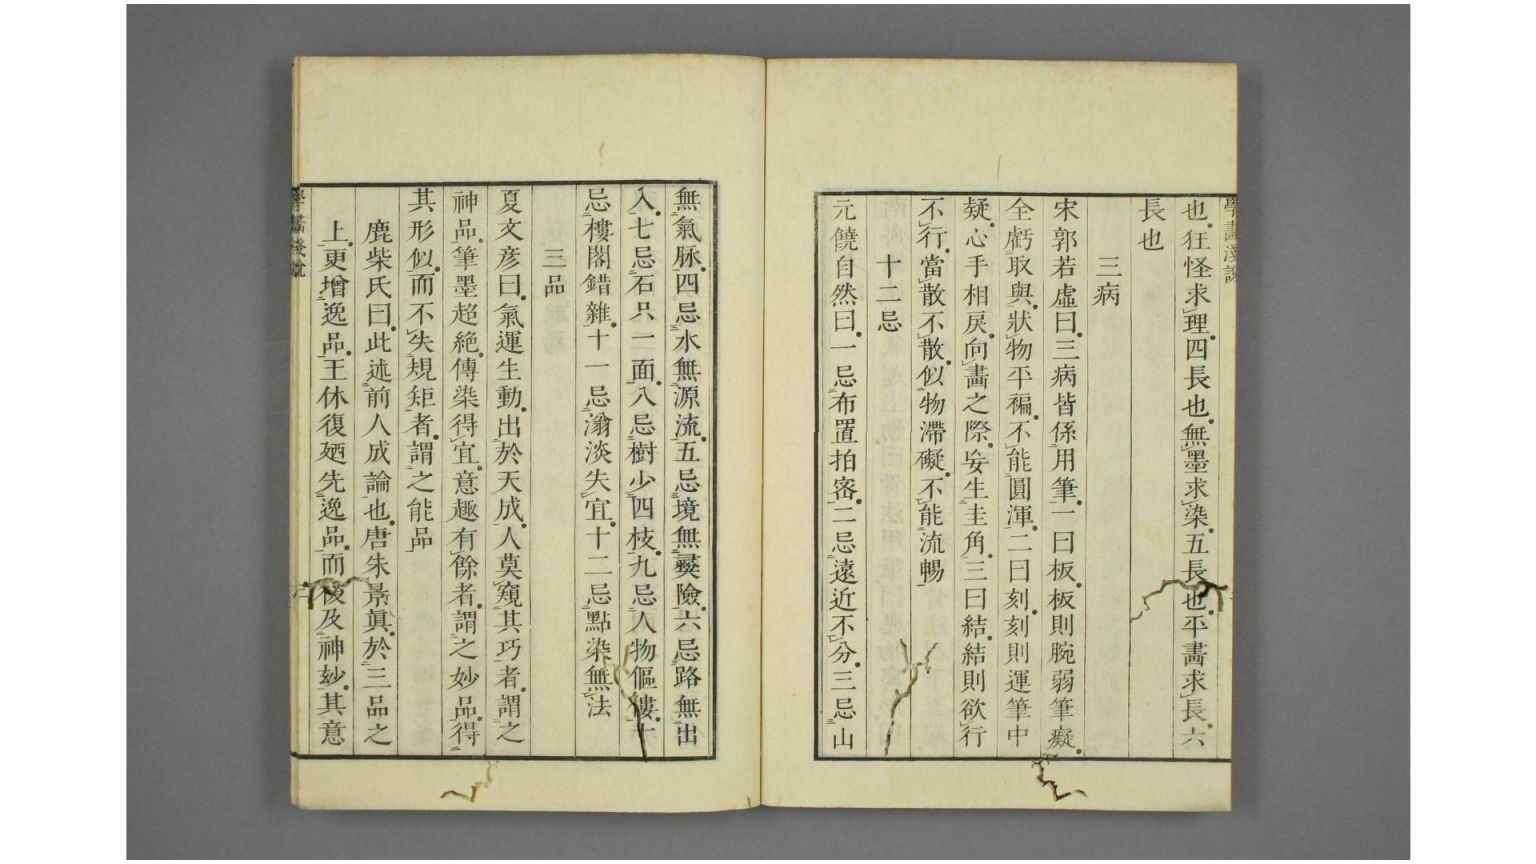 也狂怪求理四長也無墨求染五長也平畵求長六
長也
三病
宋郭若虛曰三病皆係用筆一曰板板則腕弱筆癡
全虧取與狀物平褊不能圓渾二曰刻刻則運筆中
疑心手相戾向畵之際妄生圭角三曰結結則欲行
不行當散不散似物滯礙不能流暢
十二忌
元饒自然曰一忌布置拍密二忌遠近不分三忌山
無氣脉四忌水無源流五忌境無夷險六忌路無出
入七忌石只一面八忌樹少四枝九忌人物傴僂十
忌樓閣錯雜十一忌滃淡失宜十二忌點染無法
三品
夏文彦曰氣運生動出於天成人莫窺其巧者謂之
神品筆墨超絶傳染得宜意趣有餘者謂之妙品得
其形似而不失規矩者謂之能品
鹿柴氏曰此述前人成論也唐朱景眞於三品之
上更增逸品王休復廼先逸品而後及神妙其意
學畵淺說